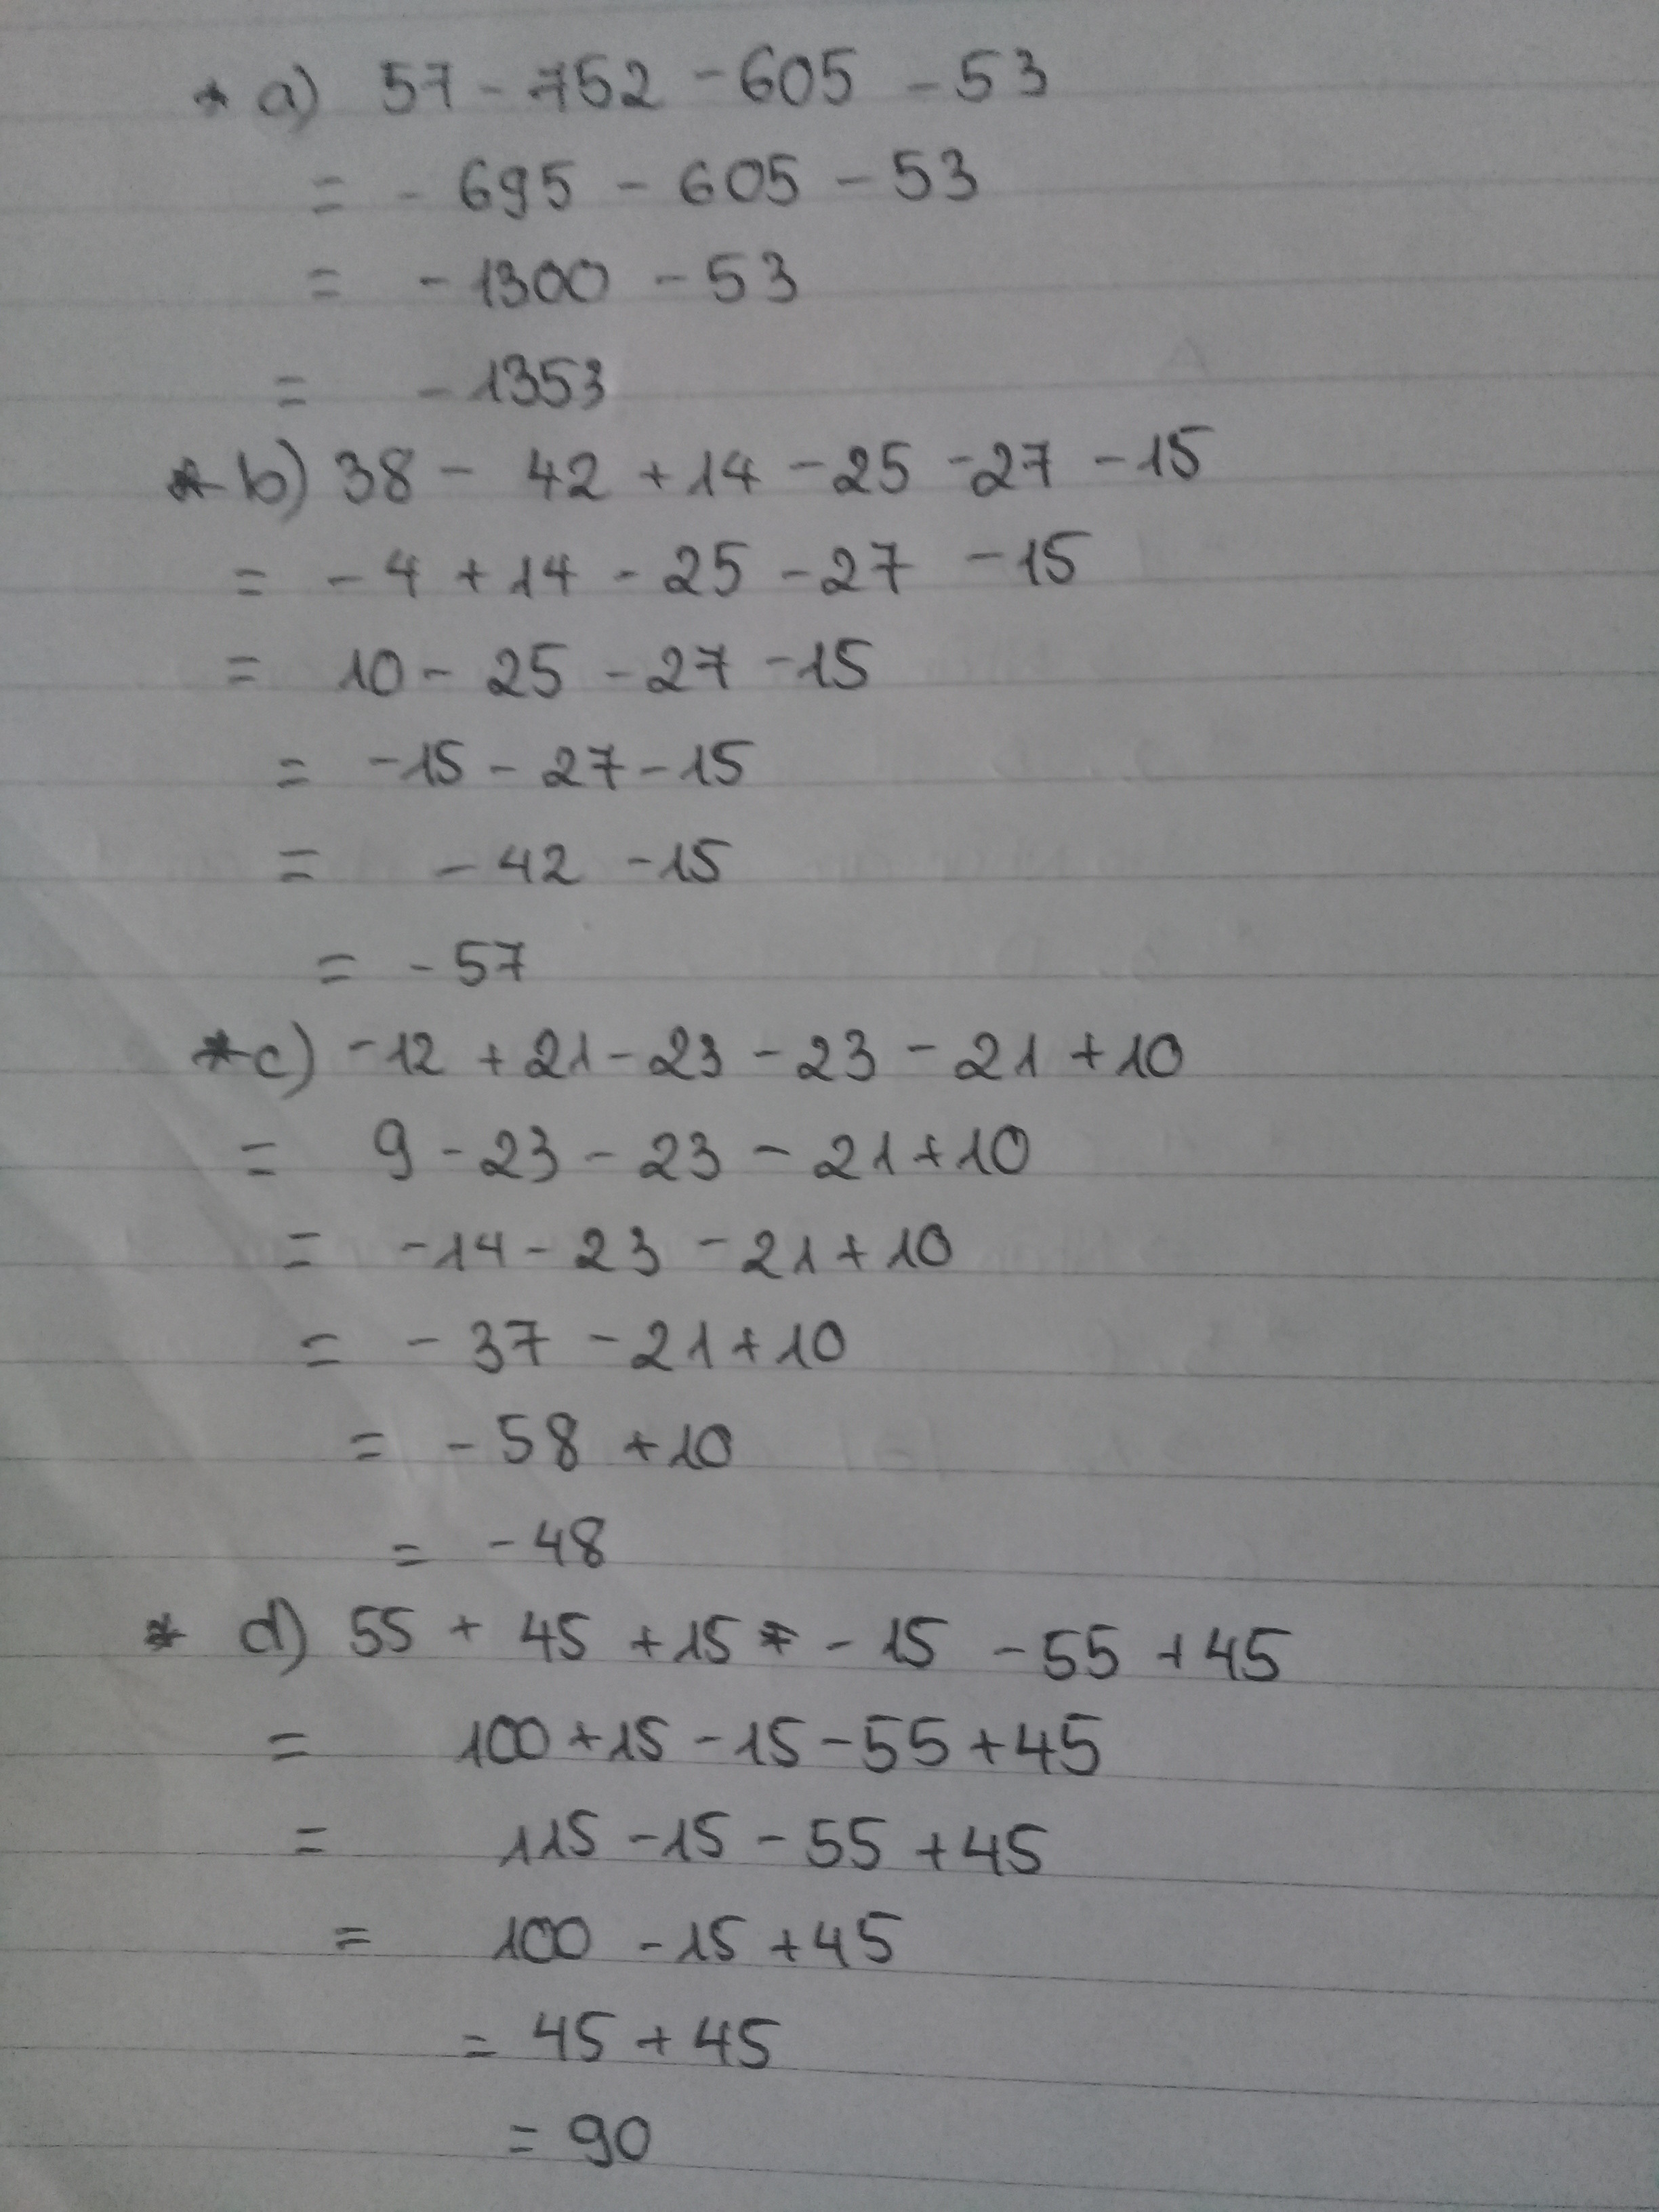 * a) 57 - 752 - 605 - 53
= - 695 - 605 - 53
= - 1300 - 53
= - 1353
* b) 38 - 42 + 14 - 25 - 27 - 15
= - 4 + 14 - 25 - 27 - 15
= 10 - 25 - 27 - 15
= -15 - 27 - 15
= - 42 - 15
= - 57
* c) -12 + 21 - 23 - 23 - 21 + 10
= 9 - 23 - 23 - 21 + 10
= -14 - 23 - 21 + 10
= - 37 - 21 + 10
= - 58 + 10
= - 48
* d) 55 + 45 + 15 - 15 - 55 + 45
= 100 + 15 - 15 - 55 + 45
= 115 - 15 - 55 + 45
= 100 - 15 + 45
= 45 + 45
= 90